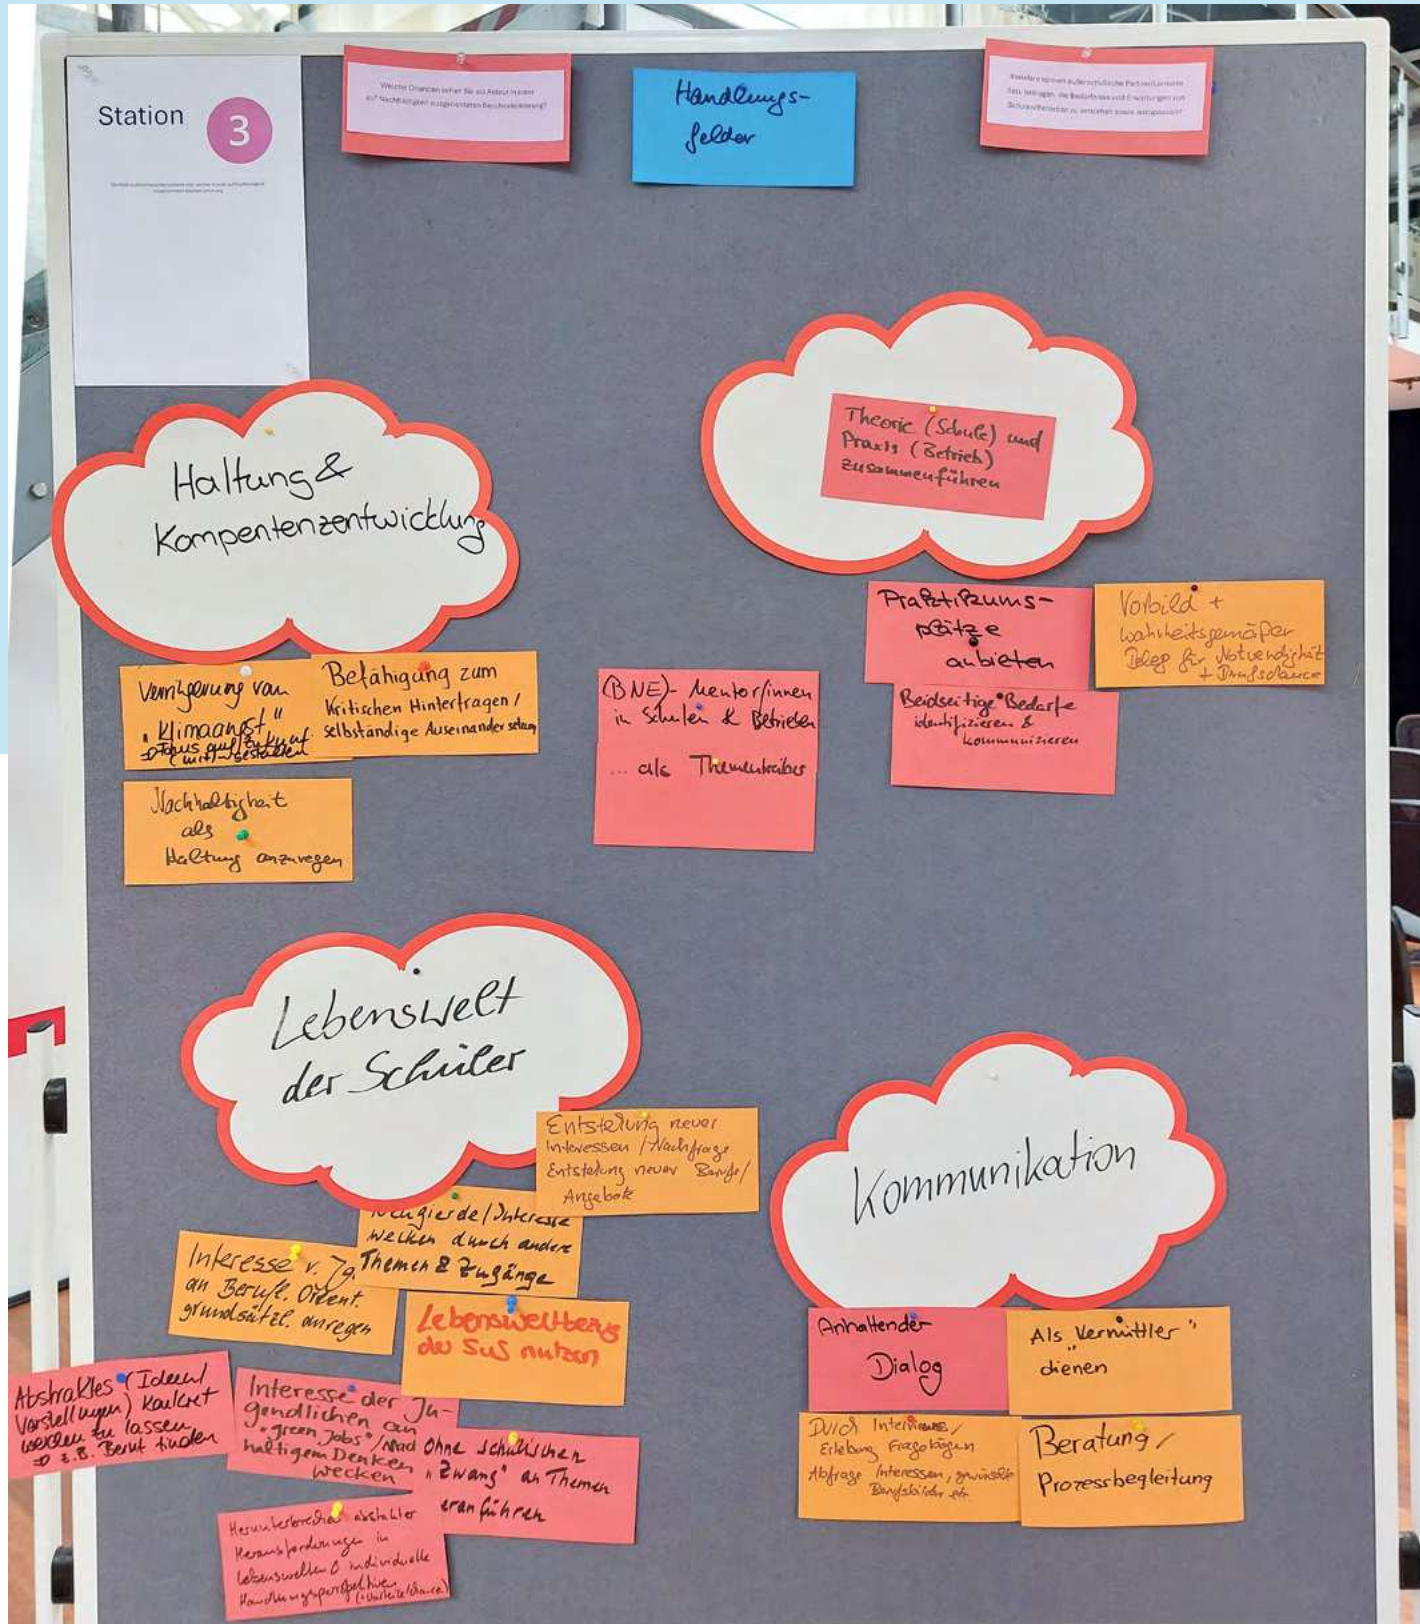 Station 3
Welche Chancen sehen Sie als Akteur in einer
auf Nachhaltigkeit ausgerichteten Berufsorientierung?
Handlungs-
felder
Inwiefern können außerschulische Partner/Lernorte
dazu beitragen, die Bedürfnisse und Erwartungen von
Haltung &
Kompentenzentwicklung
Verringerung von
"Klimaangst"
=> Fokus auf Zukunft
(mit)-gestalten
Befähigung zum
Kritischen Hinterfragen /
selbständige Auseinandersetzung
Nachhaltigkeit
als
Haltung anzuregen
Theorie (Schule) und
Praxis (Betrieb)
zusammenführen
Praktikums-
plätze
anbieten
Vorbild +
wahrheitsgemäßer
Beleg für Notwendigkeit
+ Berufschance
Beidseitige Bedarfe
identifizieren &
kommunizieren
(BNE)- Mentor/innen
in Schulen & Betrieben
... als Thementreiber
Lebenswelt
der Schüler
Entstehung neuer
Interessen / Nachfrage
Entstehung neuer Berufe/
Angebote
Neugierde/Interesse
wecken durch andere
Themen & Zugänge
Interesse v. Jg.
an Berufl. Orient.
grundsätzl. anregen
Lebensweltbezug
der SuS nutzen
Abstraktes (Ideen/
Vorstellungen) konkret
werden zu lassen
=> z.B. Beruf finden
Interesse der Ju-
gendlichen an
"green Jobs"/nach
haltigem Denken
wecken
Ohne schulischen
"Zwang" an Themen
heranführen
Herunterbrechen abstrakter
Herausforderungen in
Lebenswelten & individuelle
Handlungsperspektiven
(+ Vorteile/Chance)
Kommunikation
Anhaltender
Dialog
Als "Vermittler"
dienen
Durch Interviews/
Erhebung Fragebögen
Abfrage Interessen, gewünschte
Berufsbilder etc.
Beratung/
Prozessbegleitung